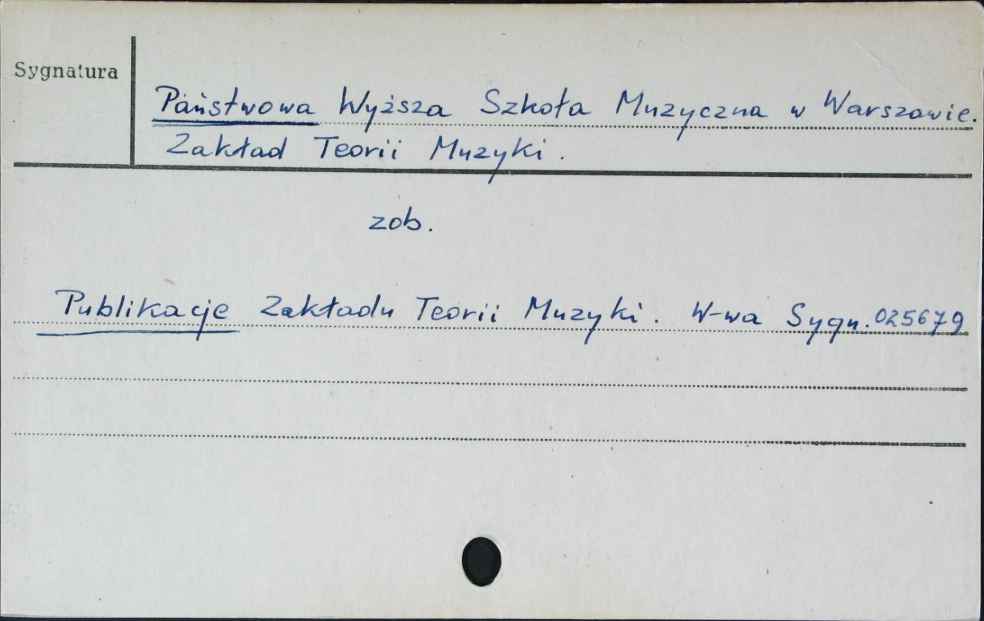 Sygnatura
Państwowa Wyższa Szkoła Muzyczna w Warszawie.
Zakład Teorii Muzyki.
zob.
Publikacje Zakładu Teorii Muzyki. W-wa Sygn. 025679